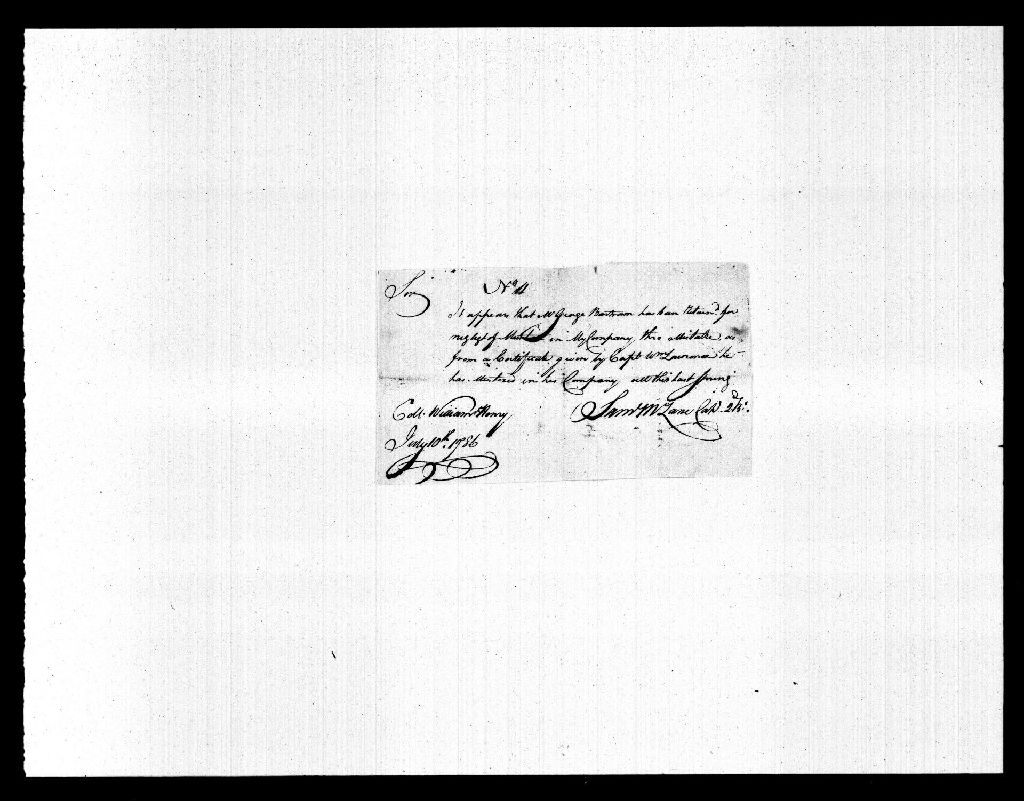 Sir
No. 4
It appears that Mr George Bartram has ban Return'd for
neglect of in My Company, thro mistake, as
from a Certificate given by Capt. Wm Lawrence he
has Mustred in his Company all this last Spring
Coll. William Henry,
Saml McLane Capt. 2d
July 10th. 1786